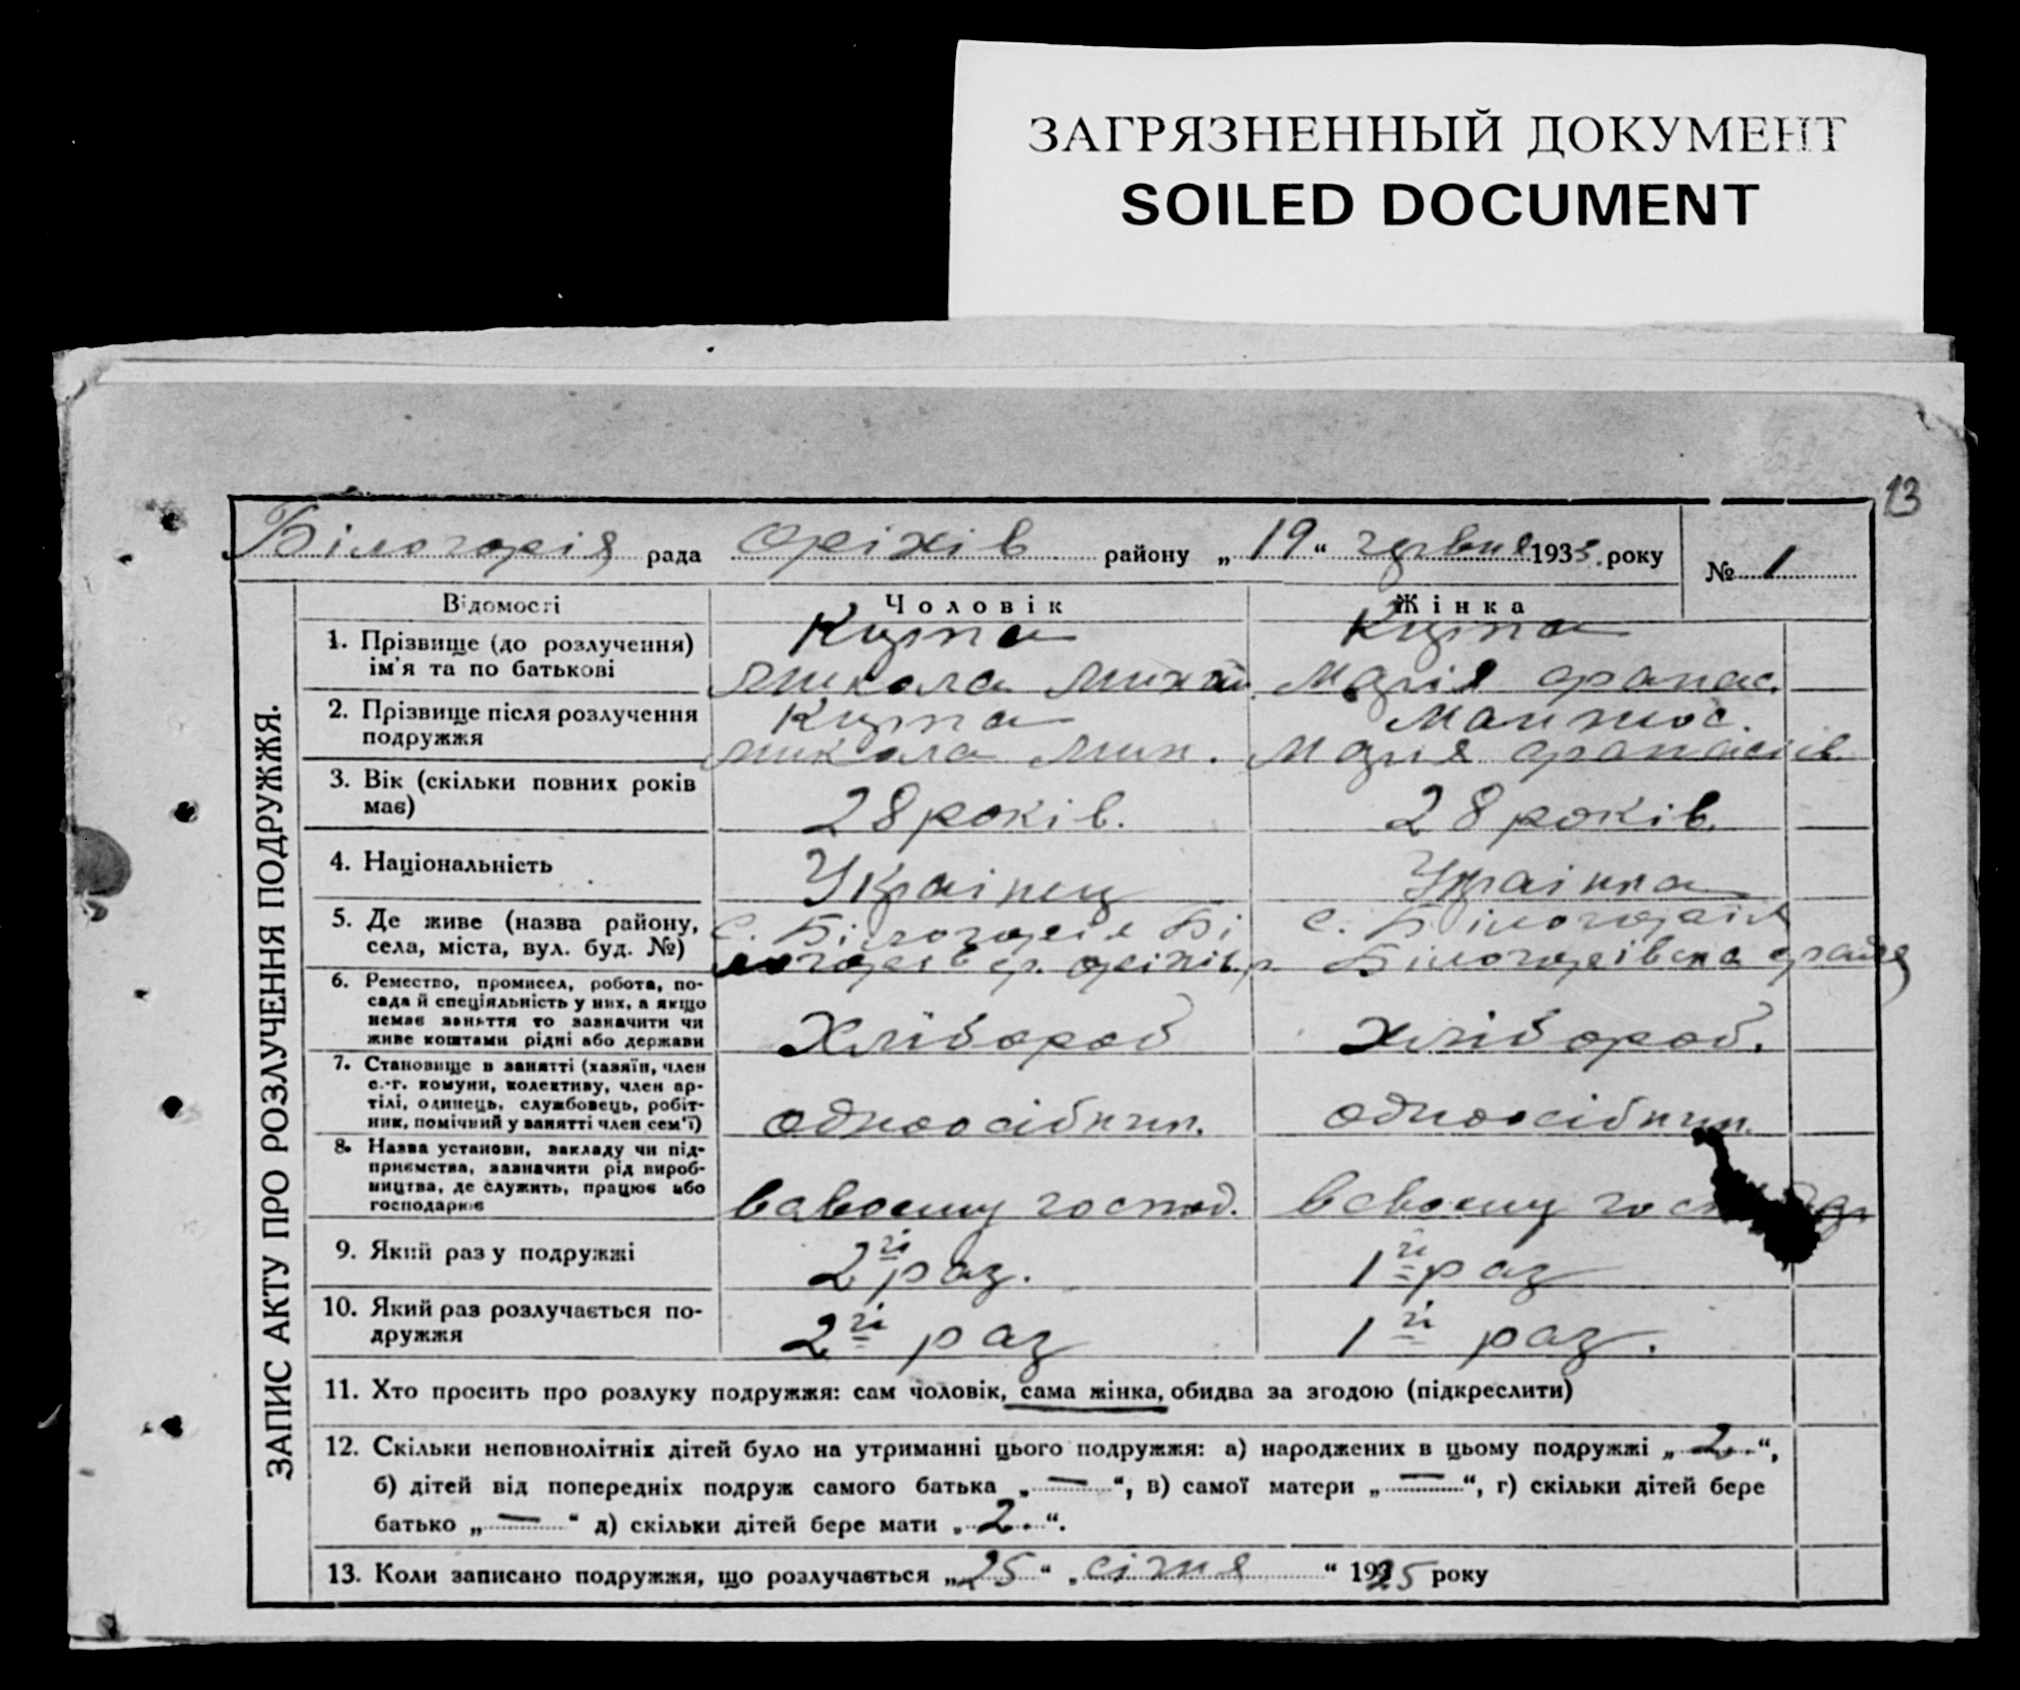 ЗАГРЯЗНЕННЫЙ ДОКУМЕНТ
SOILED DOCUMENT
13
Білогорія рада оріхів району „19“ червня 1933. року
№ 1
ЗАПИС АКТУ ПРО РОЗЛУЧЕННЯ ПОДРУЖЖЯ.
Відомості Чоловік Жінка
1. Прізвище (до розлучення) Курта Курта
ім'я та по батькові Микола Михай Марія
2. Прізвище після розлучення Курта
подружжя Микола Мих. Марія
3. Вік (скільки повних років
має) 28 років. 28 років.
4. Національність Українец Українка
5. Де живе (назва району, с. Білогорія Бі с. Білогорія
села, міста, вул. буд. №) Білогорівска
6. Ремество, промисел, робота, по-
сада й спеціяльність у них, а якщо
немає заняття то зазначити чи Хлібороб Хлібороб.
живе коштами рідні або держави
7. Становище в занятті (хазяїн, член
с.-г. комуни, колективу, член ар-
тілі, одинець, службовець, робіт- одноосібник. одноосібник.
ник, помічний у занятті член сем'ї)
8. Назва установи, закладу чи під-
приємства, зазначити рід вироб-
ництва, де служить, працює або всвоему господ. всвоему
господарює
9. Який раз у подружжі 2й раз. 1й раз
10. Який раз розлучається по-
дружжя 2й раз 1й раз.
11. Хто просить про розлуку подружжя: сам чоловік, сама жінка, обидва за згодою (підкреслити)
12. Скільки неповнолітніх дітей було на утриманні цього подружжя: а) народжених в цьому подружжі „2.“,
б) дітей від попередніх подруж самого батька „—“, в) самої матери „—“, г) скільки дітей бере
батько „—“ д) скільки дітей бере мати „2.“.
13. Коли записано подружжя, що розлучається „25“ „січня“ 1925 року